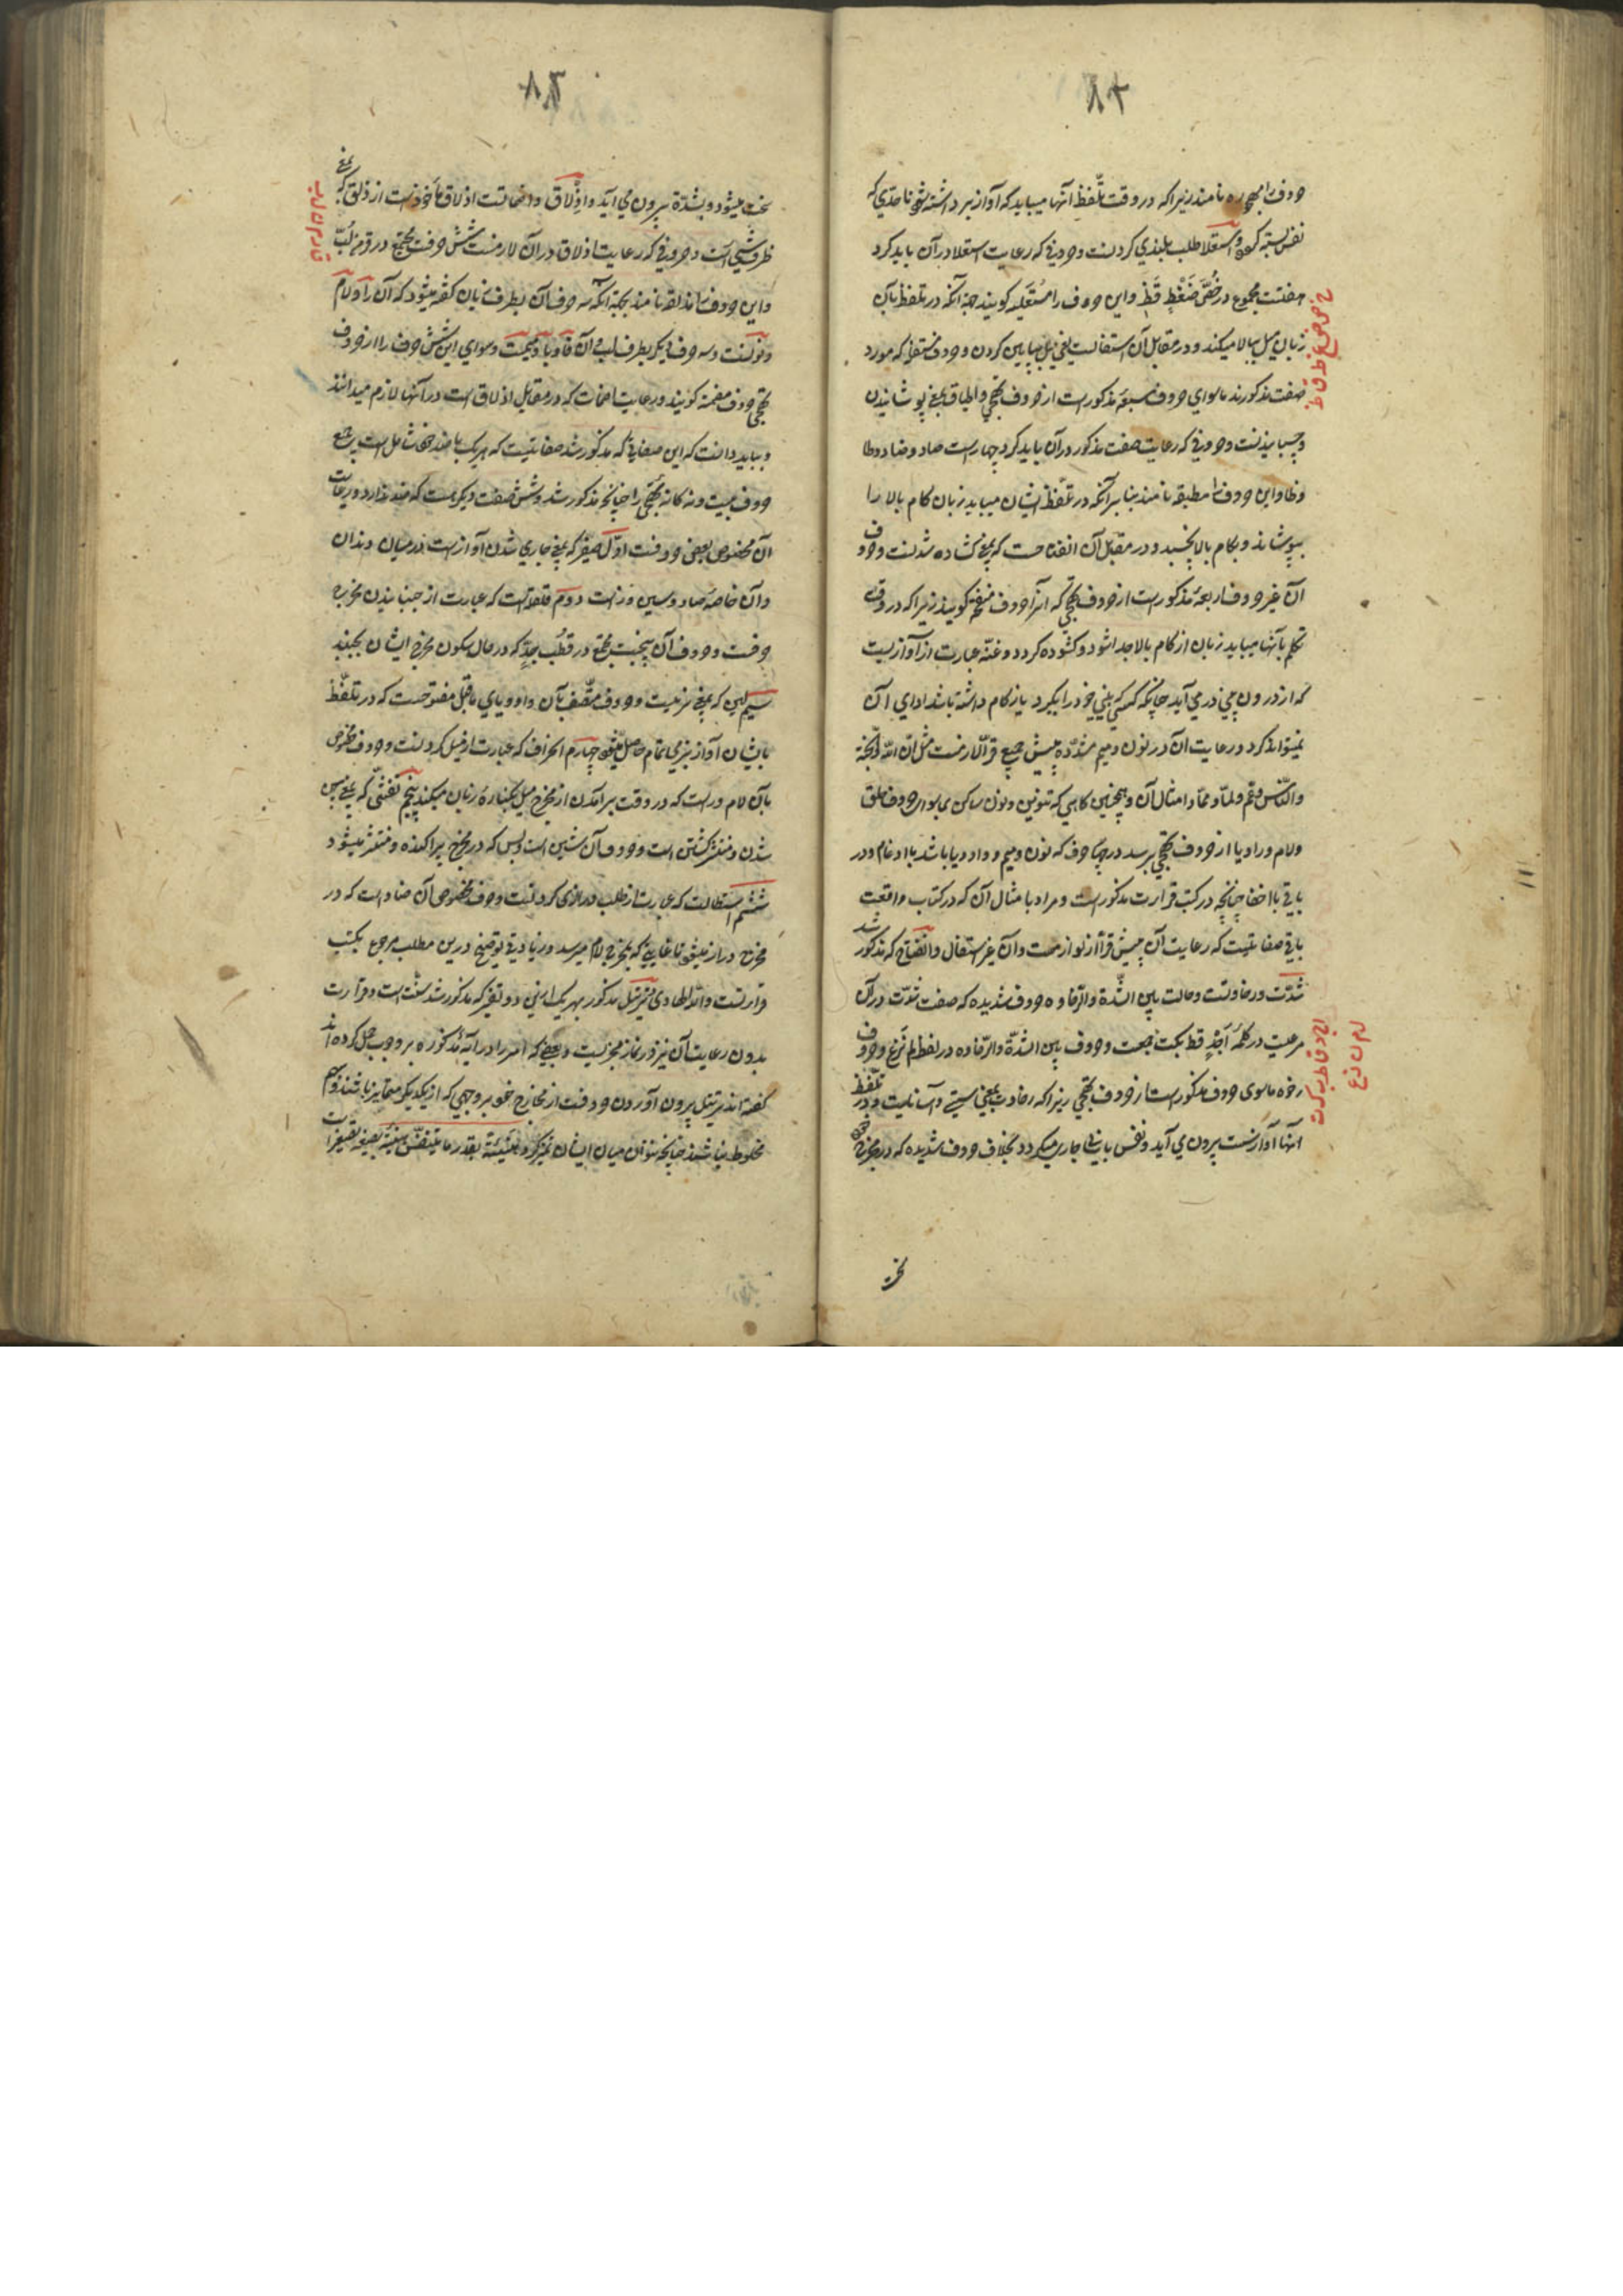 ۸۴
حروف را مجهوره نامند زیرا که در وقت تلّفظ آنها میباید که آواز برداشته شود تا حدّی که
نفس بسته گردد و استعلا طلب بلندی کردنست و حروفی که رعایت استعلا در آن باید کرد
هفتست مجموع در خُصَّ ضَغْطٍ قَظْ و این حروف را مُسْتَعلیه کویند جهة آنکه در تلفظ بآن
زبان میل ببالا میکند و در مقابل آن استفالست یعنی میل بپایین کردن و حروف مستفله که مورد
صفت مذکورند ماسوای حروف سبعهٔ مذکور است از حروف تهجّی و اطباق بمعنی پوشانیدن
و چسبانیدنست و حروفی که رعایت صفت مذکور در آن باید کرد چهار است صاد و ضاد و طا
و ظا و این حروف را مطبقه نامند بنا بر آنکه در تلّفظ ایشان میباید زبان کام بالا را
بپوشاند و بکام بالا چسبد و در مقابل آن انفتاحست که بمعنی کشاده شدنست و حروف
آن غیر حروف اربعهٔ مذکور است از حروف تهجّی که آنرا حروف منفتحه کویند زیرا که در وقت
تکلم بآنها میباید زبان از کام بالا جدا شود و کشوده کردد و غنّه عبارت از آوازیست
که از درون بینی در می آید چنانکه کسی که بینی خود را بگیرد یا زکام داشته باشد ادای آن
نمیتواند کرد و رعایت آن در نون و میم مشدّده پیش جمیع قرّا لازمست مثل انّ اللّه و الجنّة
و النّاس و عمّ و لمّا و ممّا و امثال آن و همچنین کاهی که تنوین و نون ساکن بماسوای حروف حلق
و لام و را و یا از حروف تهجّی برسد در چهار حرف که نون و میم و واو و یا باشد با ادغام و در
باقی با اخفا چنانچه در کتب قرائت مذکور است و مراد با مثال آن که در کتاب واقعست
باقی صفاتیست که رعایت آن پیش قرّا از لوازمست و آن غیر استفال و انفتاح که مذکور شد
شدّت و رخاوتست و حالت بین الشّدة و الرّخاوه حروف شدیده که صفت شدّت در آن
مرعیست در کلمهٔ اَجَدُ قط بکت جمعست و حروف بین الشدّة و الرّخاوه در لفظ لم نَرُعْ و حروف
رخوه ماسوی حروف مذکور است از حروف تهجّی زیرا که رخاوت بمعنی سستی و آسانیست و در تلّفظ
آنها آواز سست بیرون می آید و نفس با نرمی جاری میکردد بخلاف حروف شدیده که در مخرج خود
خ ص ض غ ط ق ظ
ا ج د ق ط ب ک ت
ل م ن ر ع
سخت
۸۵
سخت میشود و بشدّة بیرون می آید و اِذْلاق و اصماتست اذلاق مأخوذ است از ذلق که بمعنی
طرف شیئ است و حروفی که رعایت اذلاق در آن لازمست شش حرفست مجتمع در فرّ من لُبّ
و این حروف را مذلقه نامند بجهة آنکه سه حرف آن بطرف زبان کفته میشود که آن را و لام
و نونست و سه حرف دیگر بطرف لب و آن فا و با و میمست و سوای این شش حرف را از حروف
تهجّی حروف مصمته کویند و رعایت اصمات که در مقابل اذلاق است در آنها لازم میدانند
و بباید دانست که این صفاتی که مذکور شد صفاتیست که هر یک با ضد خود شامل است بر جمیع
حروف بیست و نه کانهٔ تهجّی را چنانچه مذکور شد و شش صفت دیگر هست که ضد ندارد و رعایت
آن مخصوص بعضی حروفست اوّل صفیر که بمعنی جاری شدن آواز است در میان دندان
و آن خاصهٔ صاد و سین و زا است دوّم قلقله است که عبارت از جنبانیدن مخرج
حرفست و حروف آن پنجست مجتمع در قطُب جدٍّ که در حال سکون مخرج ایشان بجنبد
سیّم لین که بمعنی نرمیست و حروف متّصف بآن واو و یای ماقبل مفتوحست که در تلفّظ
بایشان آواز بنرمی تمام حاصل میشود چهارم انحراف که عبارت از میل کردنست و حروف مخصوص
بآن لام و را است که در وقت برآمدن از مخرج میل بکنارهٔ زبان میکنند پنجم تفشّی که بمعنی پهن
شدن و منتشر کشتن است و حروف آن شین است و بس که در مخرج پراکنده و منتشر میشود
ششم استطالت که عبارت از طلب درازی کردنست و حرف مخصوص آن ضاد است که در
مخرج دراز میشود تا غایتی که بمخرج لام میرسد و زیادتی توضیح درین مطلب مرجوع بکتب
قرائتست و اللّه الهادی ترتیل مذکور بهر یک از این دو تفسیر که مذکور شد سنّت است و قرائت
بدون رعایت آن نیز در نماز مجزیست و بعضی که امر را در آیهٔ مذکوره بر وجوب حمل کرده اند
کفته اند ترتیل بیرون آوردن حروفست از مخارج خود بر وجهی که از یکدیگر متمایز باشند و بهم
مخلوط نباشند چنانچه نتوان میان ایشان تمیز کرد
ف ر م ن ل ب